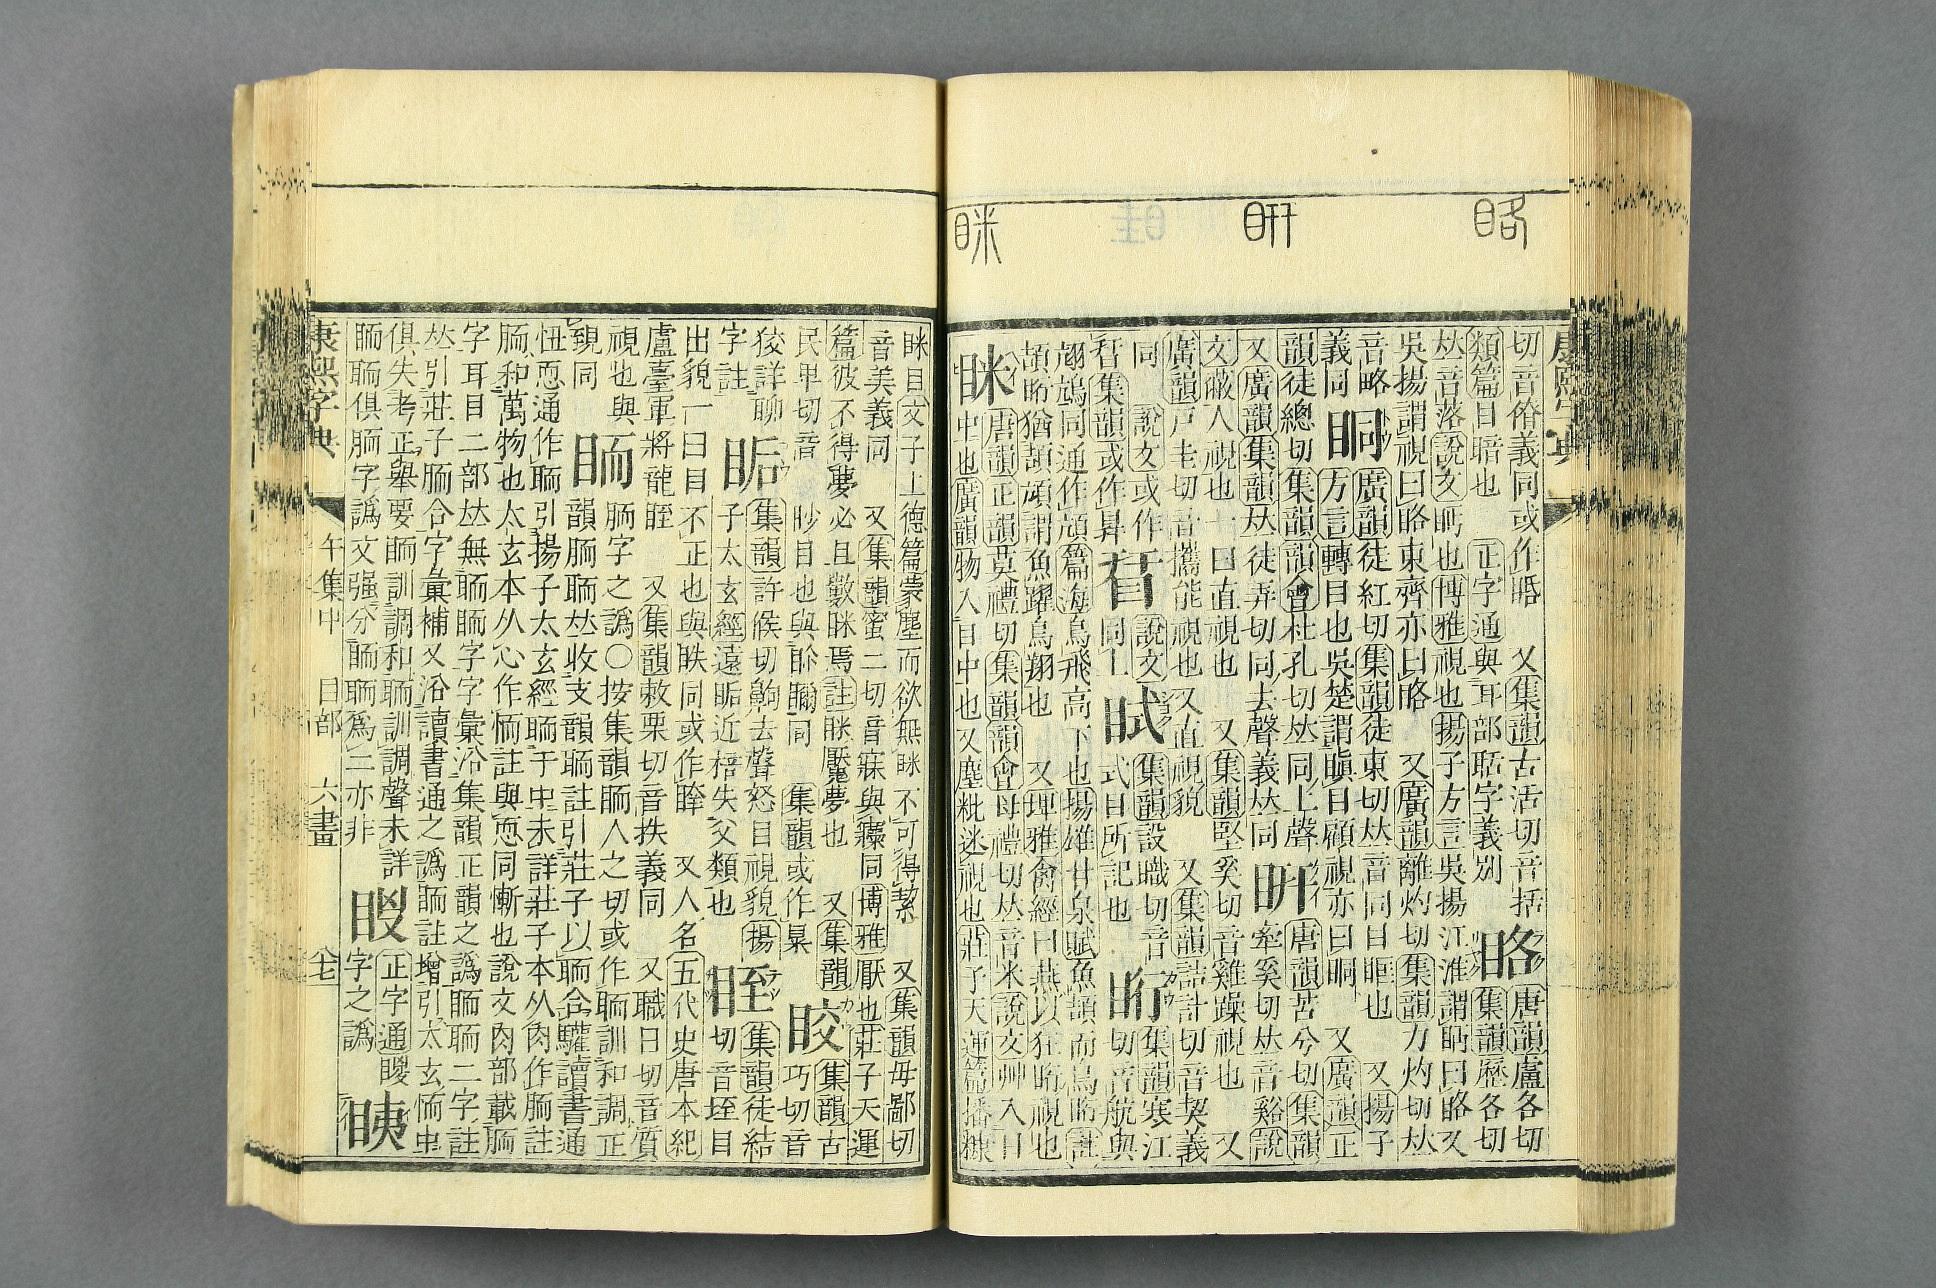 䀩
䀘
眯
切音僚義同或作䀨　又集韻古活切音括
類篇目暗也　正字通與耳部聒字義別
略
唐韻盧各切
集韻歷各切
𠀤音落說文眄也博雅視也揚子方言吳揚江淮謂眄曰略又
吳揚謂視曰略東齊亦曰略　又廣韻離灼切集韻力灼切𠀤
音略
眮
廣韻徒紅切集韻徒東切𠀤音同目眶也　又揚子
方言轉目也吳楚謂瞋目顧視亦曰眮　又廣韻正
韻徒總切集韻韻會杜孔切𠀤同上聲義𠀤同
又廣韻集韻𠀤徒弄切同去聲義𠀤同
唐韻苦兮切集韻
牽奚切𠀤音谿說
文蔽人視也一曰直視也　又集韻堅奚切音雞躁視也　又
廣韻戸圭切音攜能視也又直視貌　又集韻詰計切音契義
同　說文或作
眢
說文
同上
䀸
集韻設職切音
式目所記也
䀪
集韻寒江
切音航與
翓䲳同通作頏篇海鳥飛高下也揚雄甘泉賦魚頡而鳥䀪註
頡䀪猶頡頏謂魚躍鳥翔也　又埤雅禽經曰燕以狂䀪視也
眯
唐韻正韻莫禮切集韻韻會母禮切𠀤音米說文艸入目
中也廣韻物入目中也又塵粃迷視也莊子天運篇播糠
眯目文子上德篇蒙塵而欲無眯不可得絜　又集韻毋鄙切
音美義同　又集韻蜜二切音寐與㝥同博雅厭也莊子天運
篇彼不得夢必且數眯焉註眯厭夢也　又集韻
民卑切音　眇目也與　同　集韻或作
䀹
集韻古
巧切音
狡詳聊
字註
䀷
集韻許候切齁去聲怒目視貌揚
子太玄經遠䀷近掊失父類也
眰
集韻徒結
切音垤目
出貌一曰目不正也與眣同或作𥆧　又人名五代史唐本紀
盧臺軍將龍眰　又集韻敕栗切音抶義同　又職日切音質
視也與
䚔同
䎡
胹字之譌○按集韻䎡人之切或作聏訓和調正
韻胹聏𠀤收支韻聏註引莊子以聏合驩讀書通
忸恧通作聏引揚子太玄經聏于中未詳莊子本从肉作胹註
胹和萬物也太玄本从心作㤼註與恧同慚也說文肉部載胹
字耳目二部𠀤無聏䎡字字彙㳂集韻正韻之譌䎡聏二字註
𠀤引莊子胹合字彙補又㳂讀書通之譌䎡註增引太玄㤼中
俱失考正舉要䎡訓調和聏訓調聲未詳
䎡聏俱胹字譌文强分䎡聏爲二亦非
䁂
正字通䁂
字之譌
眱
康熙字典
午集中　目部　六畫
康熙字典